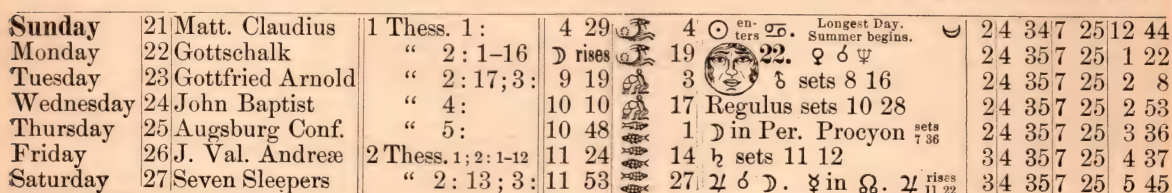 Sunday 21 Matt. Claudius 1 Thess. 1: 4 29 4 ☉ enters ♋. Longest Day. Summer begins. 2 4 34 7 25 12 44
Monday 22 Gottschalk " 2:1–16 ☽ rises 19 22. ♀ ☌ ♆ 2 4 35 7 25 1 22
Tuesday 23 Gottfried Arnold " 2:17; 3: 9 19 3 sets 8 16 2 4 35 7 25 2 8
Wednesday 24 John Baptist " 4: 10 10 17 Regulus sets 10 28 2 4 35 7 25 2 53
Thursday 25 Augsburg Conf. " 5: 10 48 1 ☽ in Per. Procyon sets 7 36 2 4 35 7 25 3 36
Friday 26 J. Val. Andreæ 2 Thess. 1; 2:1-12 11 24 14 ♄ sets 11 12 3 4 35 7 25 4 37
Saturday 27 Seven Sleepers " 2:13; 3: 11 53 27 ♃ ☌ ☽. ☿ in ☊. ♃ rises 11 22 3 4 35 7 25 5 45